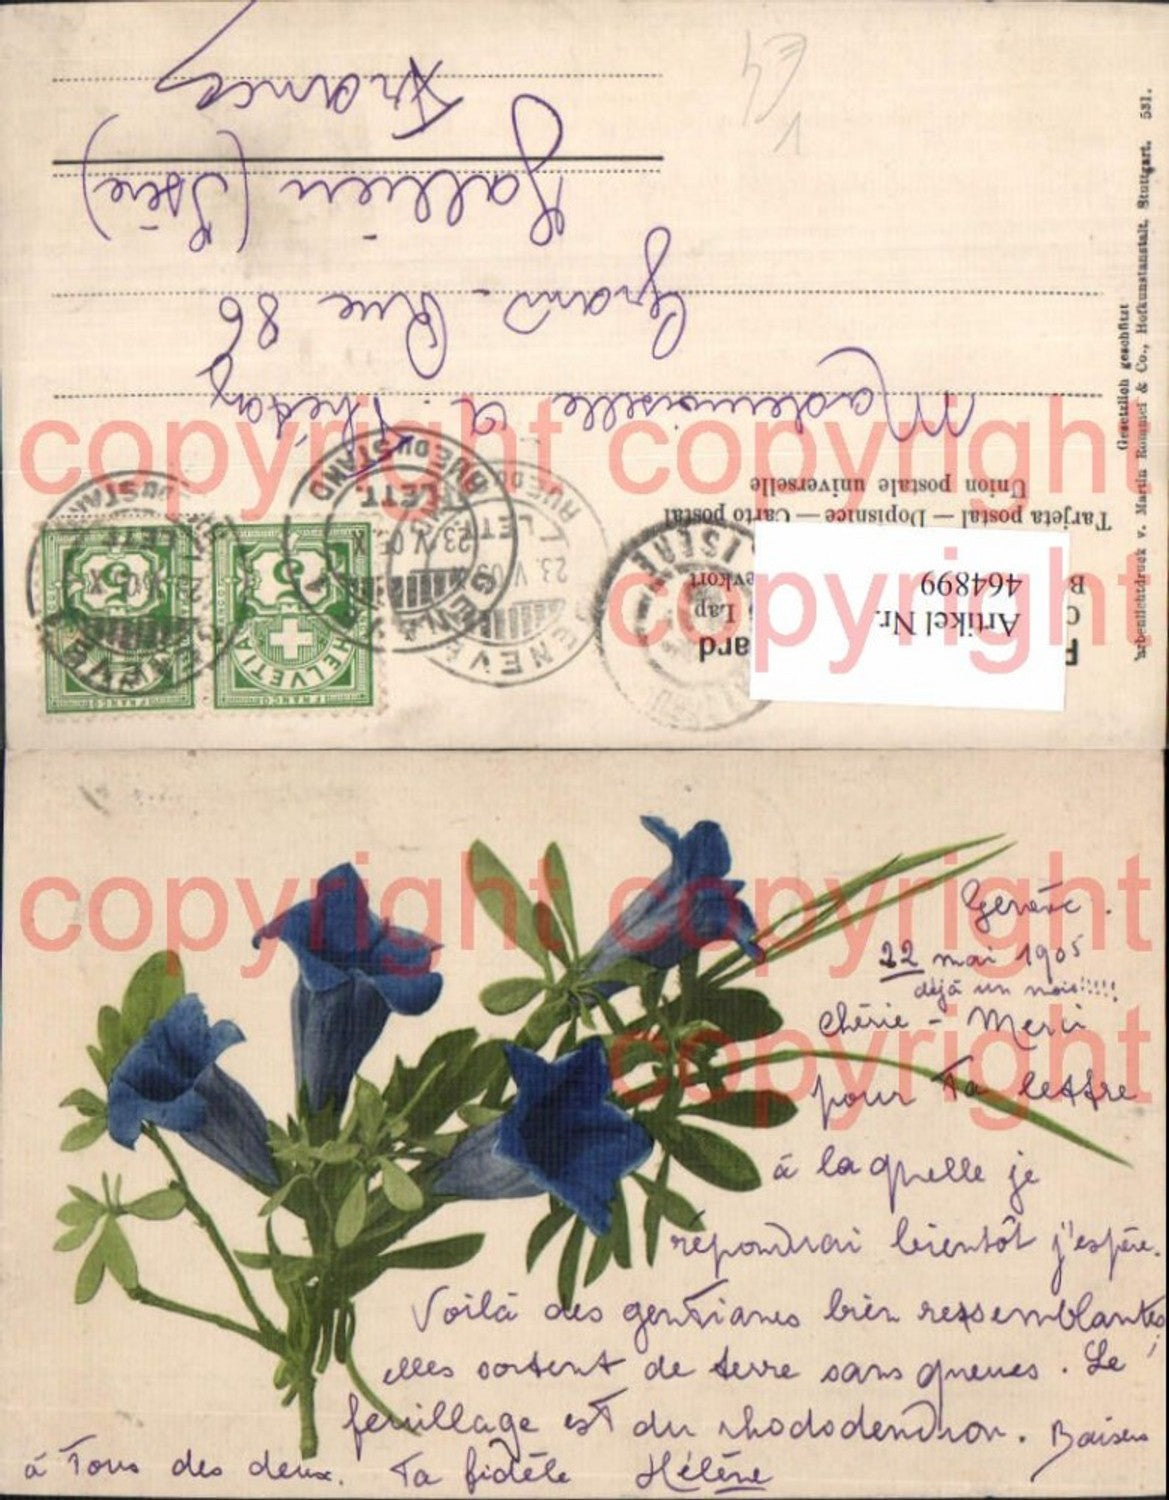 Mademoiselle A.
Grand-Rue 86
Hallien (Isère)
France
Artikel Nr.
464899
ard
Lap
evkort
Tarjeta postal — Dopisnice — Carto postal
Union postale universelle
Gesetzlich geschützt
Farbenlichtdruck v. Martin Rommel & Co., Hofkunstanstalt, Stuttgart. 531.
HELVETIA
FRANCO
5
5
GENÈVE
RUE DU STAND
LETT.
23.V.05
ISÈRE
copyright copyright
copyright
copyright copyright
copyright
Genève.
22 mai 1905
déjà un mois!!!!!
Chérie - Merci
pour ta lettre
à laquelle je
répondrai bientôt j'espère.
Voilà des gentianes bien ressemblantes
elles sortent de terre sans queues. Le
feuillage est du rhododendron. Baisers
à tous des deux. Ta fidèle Hélène